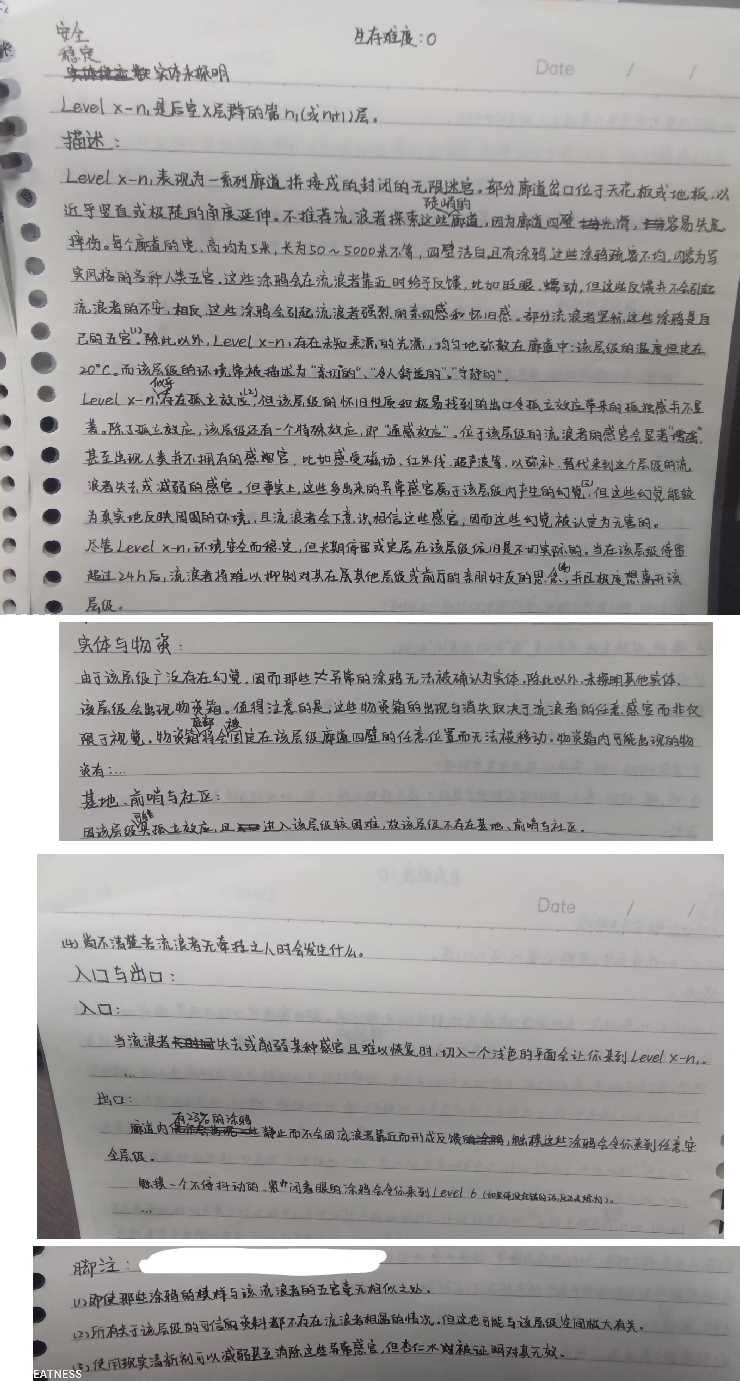 安全
生存难度:0
稳定
Date / /
实体未探明
Level x-n₁是后室X层群的第n₁(或n+1)层。
描述:
Level x-n₁表现为一系列廊道拼接成的封闭的无限迷宫。部分廊道岔口位于天花板或地板,以
近乎竖直或极陡的角度延伸。不推荐流浪者探索这些陡峭的廊道,因为廊道四壁光滑,容易失足
摔伤。每个廊道的宽、高均为5米,长为50~5000米不等,四壁洁白且有涂鸦,这些涂鸦疏密不均,内容为写
实风格的各种人类五官。这些涂鸦会在流浪者靠近时给予反馈,比如眨眼、蠕动,但这些反馈并不会引起
流浪者的不安,相反,这些涂鸦会引起流浪者强烈的亲切感和怀旧感。部分流浪者坚称这些涂鸦是自
己的五官⁽¹⁾。除此以外,Level x-n₁存在未知来源的光源,均匀地弥散在廊道中;该层级的温度恒定在
20℃。而该层级的环境常被描述为“亲切的”、“令人舒适的”、“宁静的”。
Level x-n₁似乎存在孤立效应⁽²⁾,但该层级的怀旧性质和极易找到的出口令孤立效应带来的孤独感并不显
著。除了孤立效应,该层级还有一个特殊效应,即“通感效应”。位于该层级的流浪者的感官会显著“增强”,
甚至出现人类并不拥有的感观官,比如感受磁场、红外线、超声波等,以弥补、替代来到这个层级的流
浪者失去或减弱的感官。但事实上,这些多出来的异常感官属于该层级内产生的幻觉⁽³⁾,但这些幻觉能较
为真实地反映周围的环境,且流浪者会下意识相信这些感官,因而这些幻觉被认定为无害的。
尽管Level x-n₁环境安全而稳定,但长期停留或定居在该层级依旧是不切实际的。当在该层级停留
超过24h后,流浪者将难以抑制对其在居其他层级或前厅的亲朋好友的思念⁽⁴⁾,并且极度想离开该
层级。
实体与物资:
由于该层级广泛存在幻觉,因而那些异常的涂鸦无法被确认为实体,除此以外,未探明其他实体。
该层级会出现物资箱。值得注意的是,这些物资箱的出现与消失取决于流浪者的任意感官而非仅
限于视觉。物资箱将会被固定在该层级廊道四壁的任意位置而无法被移动。物资箱内可能出现的物
资有:...
基地、前哨与社区:
因该层级可能具孤立效应,且进入该层级较困难,故该层级不存在基地、前哨与社区。
Date / /
(4)尚不清楚若流浪者无牵挂之人时会发生什么。
入口与出口:
入口:
当流浪者失去或削弱某种感官且难以恢复时,切入一个浅色的平面会让你来到Level x-n₁。
...
出口:
廊道内有23%的涂鸦静止而不会因流浪者靠近而形成反馈,触摸这些涂鸦会令你来到任意安
全层级。
触摸一个不停抖动的、紧闭着眼的涂鸦会令你来到Level 6
...
脚注:
(1)即使那些涂鸦的模样与该流浪者的五官毫无相似之处。
(2)所有关于该层级的可信的资料都不存在流浪者相遇的情况。但这也可能与该层级空间极大有关。
(3)使用现实清新剂可以减弱甚至消除这些异常感官,但杏仁水被证明对其无效。
EATNESS